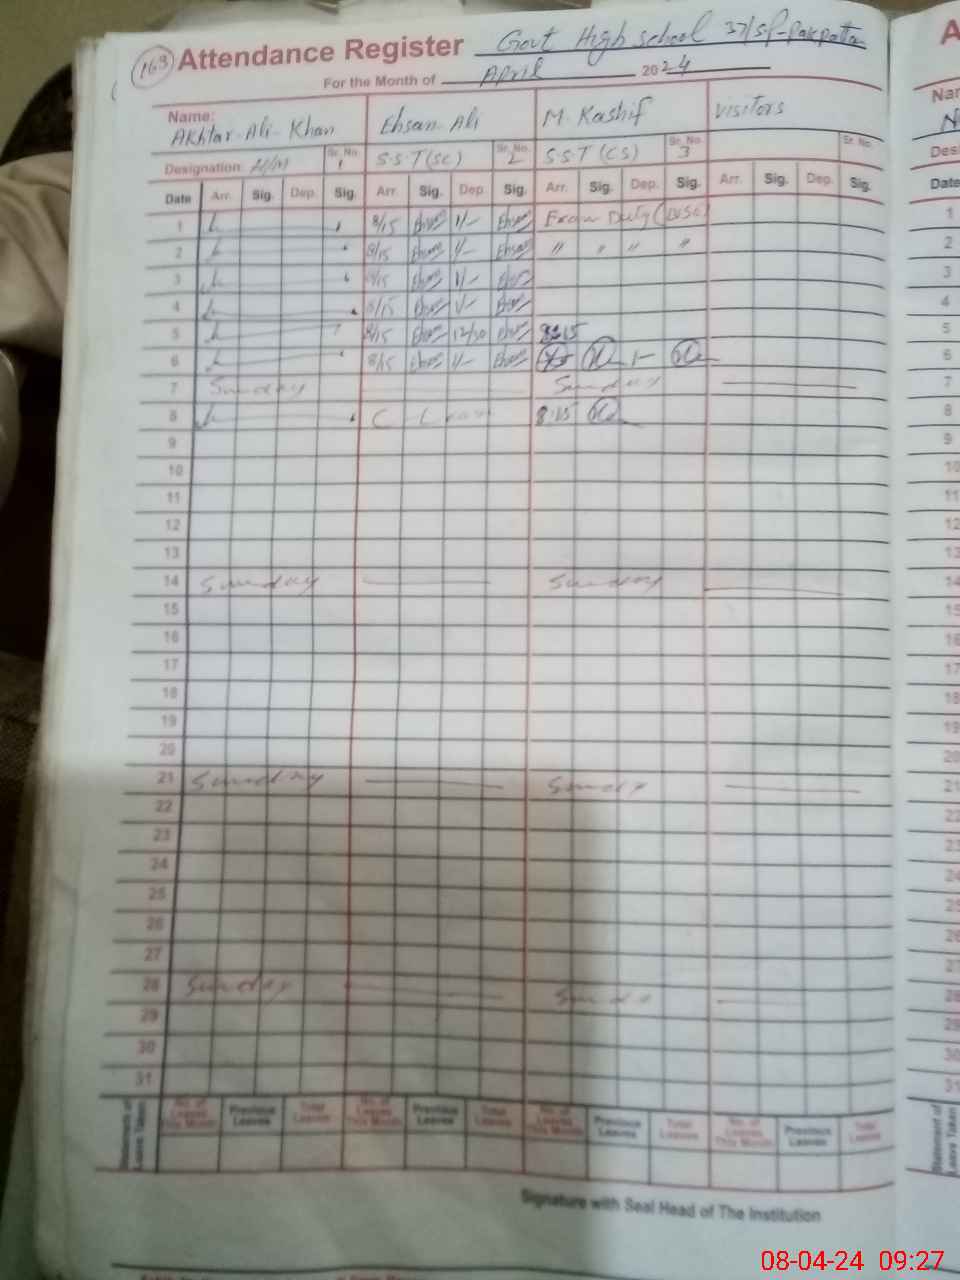 163 Attendance Register Govt High School 37/SP-Pakpattan
For the Month of April 2024
Name: Akhtar Ali Khan Ehsan Ali M. Kashif Visitors
Designation: Sr. No. 1 S.S.T (SC) Sr. No. 2 S.S.T (CS) Sr. No. 3 Sr. No.
Date Arr. Sig. Dep. Sig. Arr. Sig. Dep. Sig. Arr. Sig. Dep. Sig. Arr. Sig. Dep. Sig.
1 8/15 1/- Exam Duty
2 8/15 1/- " " " "
3 8/15 1/-
4 8/15 1/-
5 8/15 12/30 8:15
6 8/15 1/- 1-
7 Sunday Sunday
8 C Leave 8:15
9
10
11
12
13
14 Sunday Sunday
15
16
17
18
19
20
21 Sunday Sunday
22
23
24
25
26
27
28 Sunday Sunday
29
30
31
Statement of Leave Taken No. of Leaves This Month Previous Leaves Total Leaves No. of Leaves This Month Previous Leaves Total Leaves No. of Leaves This Month Previous Leaves Total Leaves No. of Leaves This Month Previous Leaves Total Leaves
Signature with Seal Head of The Institution
08-04-24 09:27